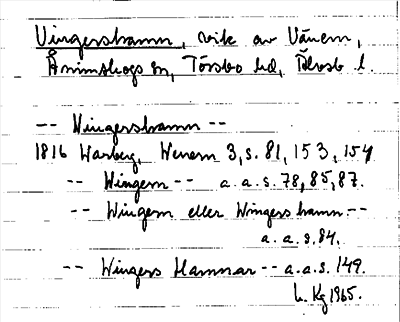 Vingershamn, vik av Vänern,
Ånimskogs sn, Tössbo hd, Älvsb l.
-- Wingershamn --
1816 Warberg, Wenern 3, s. 81, 153, 154
-- Wingern -- a.a.s. 78, 85, 87.
-- Wingern eller Wingers hamn --
a.a.s. 84.
-- Wingers Hamnar -- a.a.s. 149.
Kg 1965.